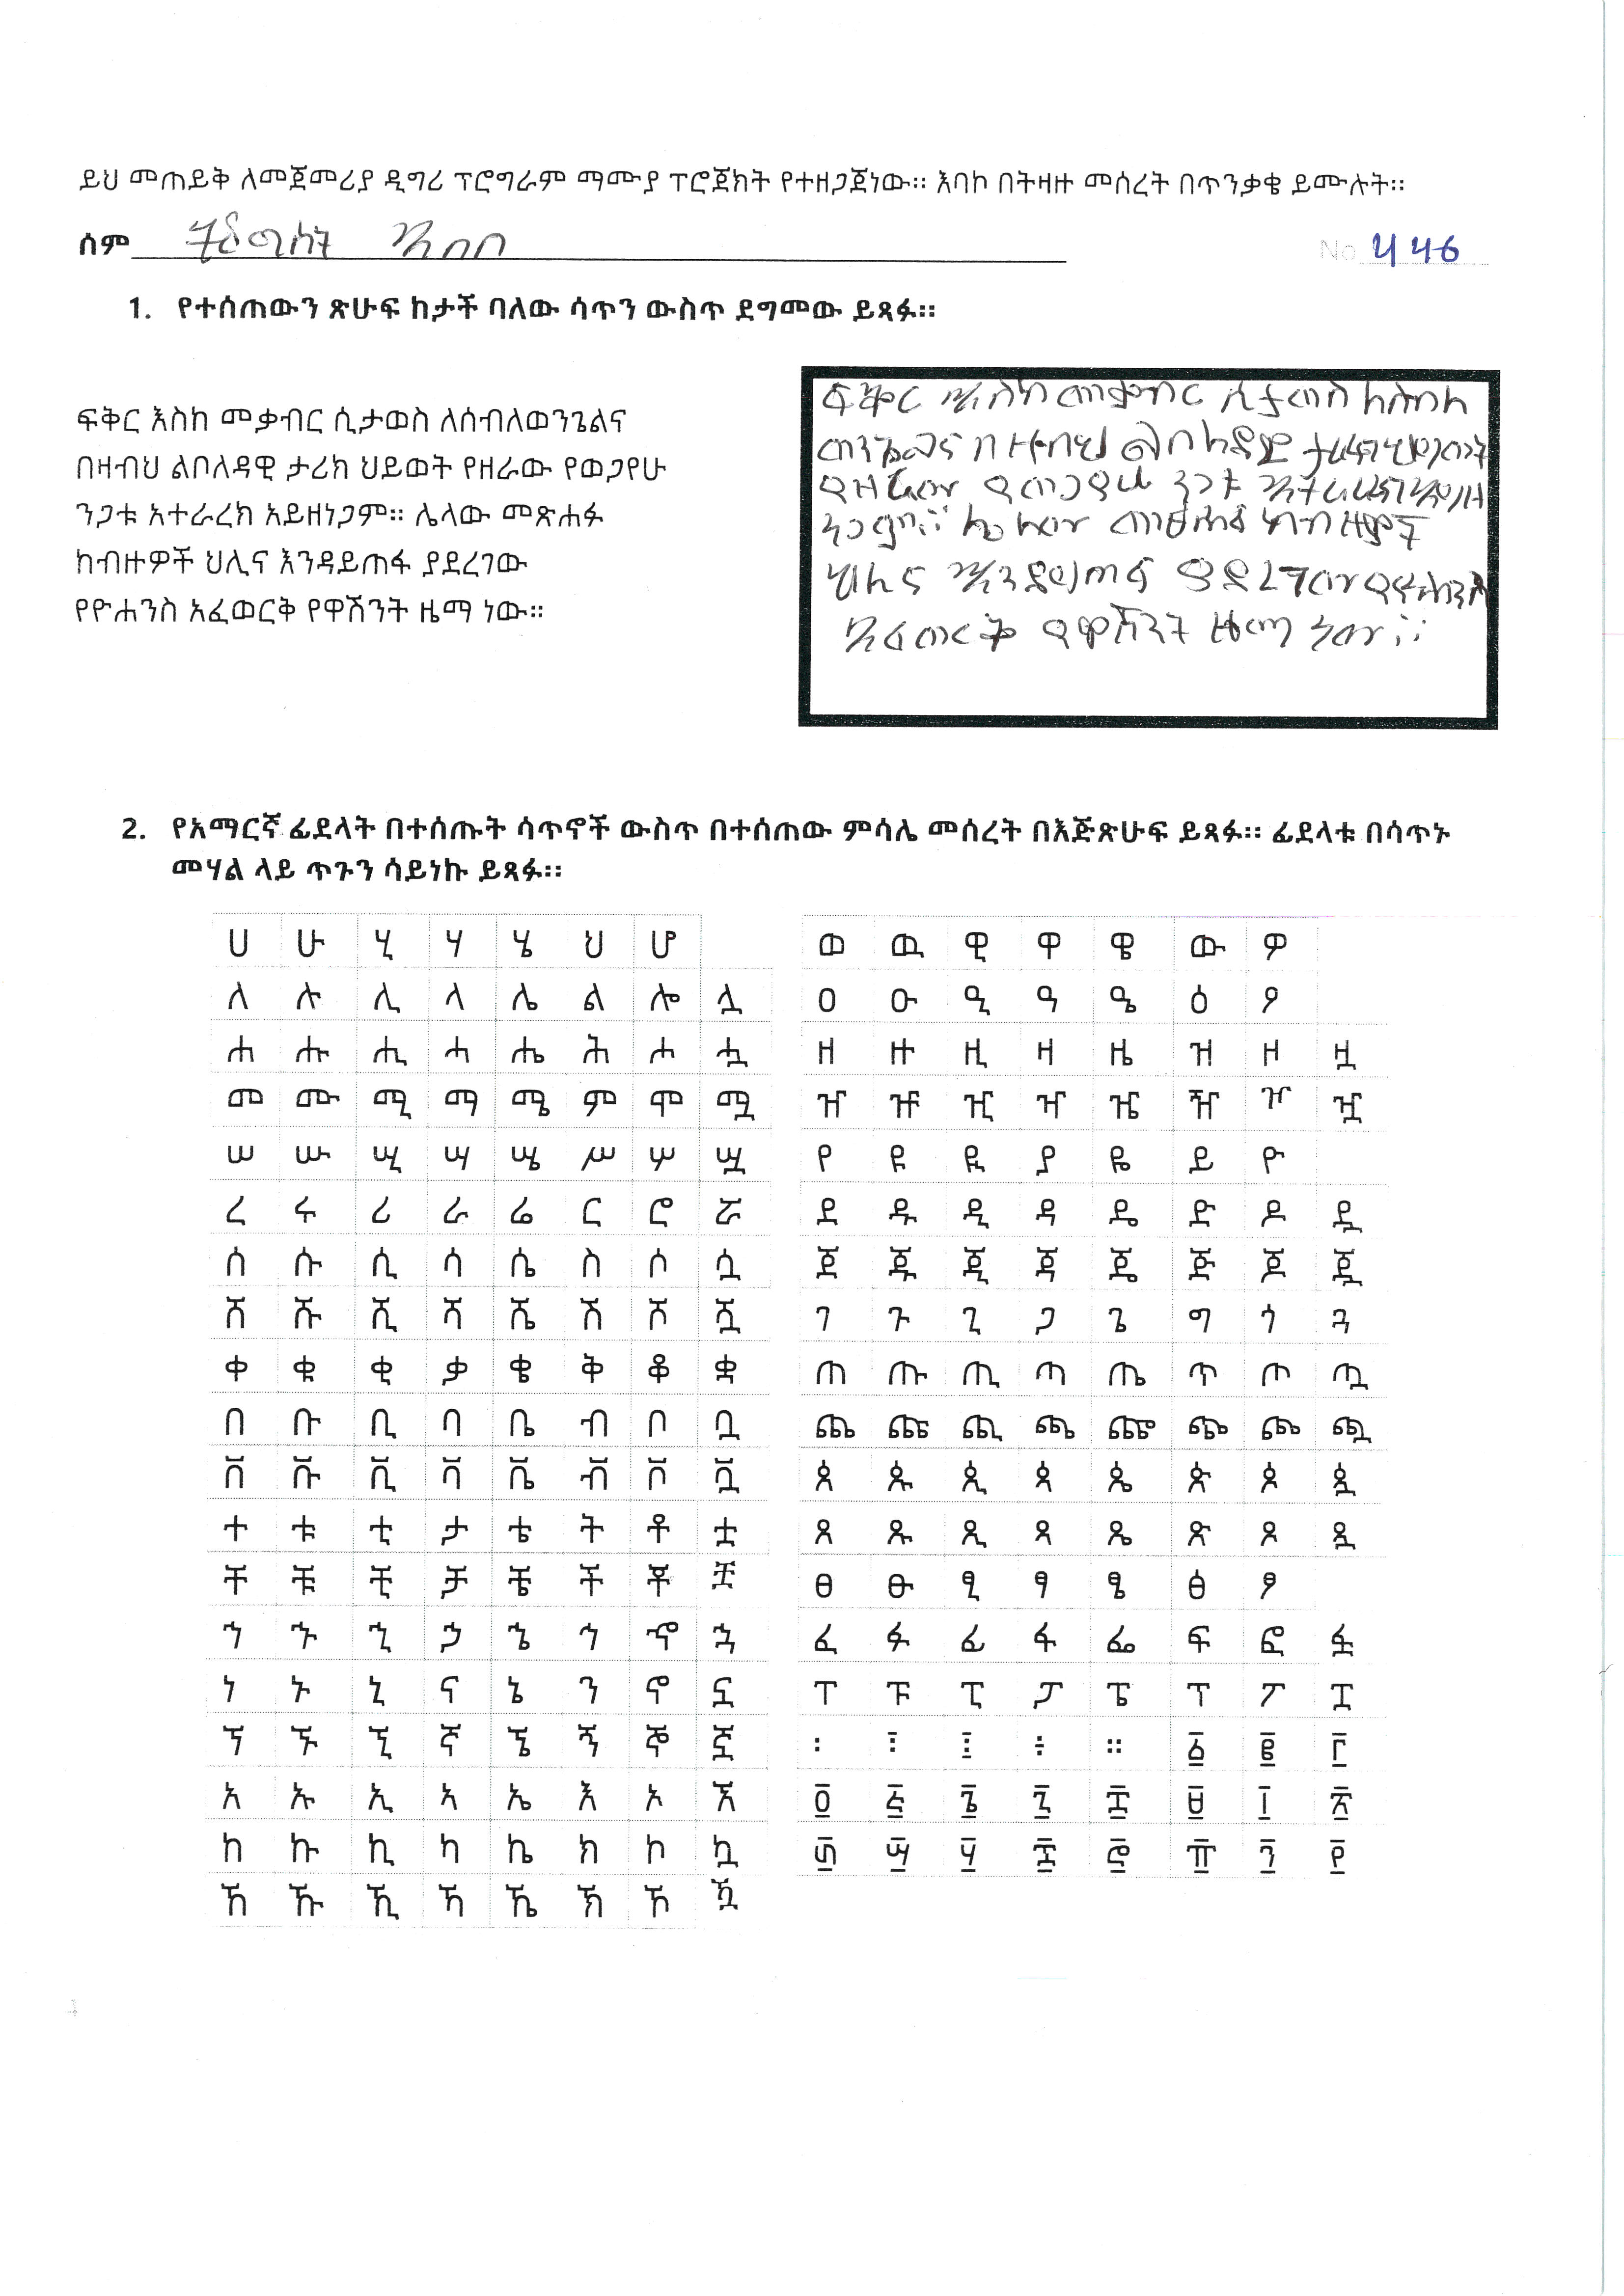 ይህ መጠይቅ ለመጀመሪያ ዲግሪ ፕሮግራም ማሙያ ፕሮጀክት የተዘጋጀነው። እባኮ በትዛዙ መሰረት በጥንቃቄ ይሙሉት።
ሰም ትዕግስት አበበ No 446
1. የተሰጠውን ጽሁፍ ከታች ባለው ሳጥን ውስጥ ደግመው ይጻፉ።
ፍቅር እስከ መቃብር ሲታወስ ለሰብለወንጌልና
በዛብህ ልቦለዳዊ ታሪክ ህይወት የዘራው የወጋየሁ
ንጋቱ አተራረክ አይዘነጋም። ሌላው መጽሐፉ
ከብዙዎች ህሊና እንዳይጠፋ ያደረገው
የዮሐንስ አፈወርቅ የዋሽንት ዜማ ነው።
ፍቅር እስከ መቃብር ሲታወስ ለሰብለ
ወንጌልና በዛብህ
የዘራው የወጋየሁ ንጋቱ
ከብዙዎች
ህሊና እንዳይጠፋ ያደረገው የዮሐንስ
አፈወርቅ የዋሽንት ዜማ ነው።
2. የአማርኛ ፊደላት በተሰጡት ሳጥኖች ውስጥ በተሰጠው ምሳሌ መሰረት በእጅጽሁፍ ይጻፉ። ፊደላቱ በሳጥኑ
መሃል ላይ ጥጉን ሳይነኩ ይጻፉ።
ሀ ሁ ሂ ሃ ሄ ህ ሆ
ለ ሉ ሊ ላ ሌ ል ሎ ሏ
ሐ ሑ ሒ ሓ ሔ ሕ ሖ ሗ
መ ሙ ሚ ማ ሜ ም ሞ ሟ
ሠ ሡ ሢ ሣ ሤ ሥ ሦ ሧ
ረ ሩ ሪ ራ ሬ ር ሮ ሯ
ሰ ሱ ሲ ሳ ሴ ስ ሶ ሷ
ሸ ሹ ሺ ሻ ሼ ሽ ሾ ሿ
ቀ ቁ ቂ ቃ ቄ ቅ ቆ ቋ
በ ቡ ቢ ባ ቤ ብ ቦ ቧ
ቨ ቩ ቪ ቫ ቬ ቭ ቮ ቯ
ተ ቱ ቲ ታ ቴ ት ቶ ቷ
ቸ ቹ ቺ ቻ ቼ ች ቾ ቿ
ኀ ኁ ኂ ኃ ኄ ኅ ኆ ኋ
ነ ኑ ኒ ና ኔ ን ኖ ኗ
ኘ ኙ ኚ ኛ ኜ ኝ ኞ ኟ
አ ኡ ኢ ኣ ኤ እ ኦ ኧ
ከ ኩ ኪ ካ ኬ ክ ኮ ኳ
ኸ ኹ ኺ ኻ ኼ ኽ ኾ ዃ
ወ ዉ ዊ ዋ ዌ ው ዎ
ዐ ዑ ዒ ዓ ዔ ዕ ዖ
ዘ ዙ ዚ ዛ ዜ ዝ ዞ ዟ
ዠ ዡ ዢ ዣ ዤ ዥ ዦ ዧ
የ ዩ ዪ ያ ዬ ይ ዮ
ደ ዱ ዲ ዳ ዴ ድ ዶ ዷ
ጀ ጁ ጂ ጃ ጄ ጅ ጆ ጇ
ገ ጉ ጊ ጋ ጌ ግ ጎ ጓ
ጠ ጡ ጢ ጣ ጤ ጥ ጦ ጧ
ጨ ጩ ጪ ጫ ጬ ጭ ጮ ጯ
ጰ ጱ ጲ ጳ ጴ ጵ ጶ ጷ
ጸ ጹ ጺ ጻ ጼ ጽ ጾ ጿ
ፀ ፁ ፂ ፃ ፄ ፅ ፆ
ፈ ፉ ፊ ፋ ፌ ፍ ፎ ፏ
ፐ ፑ ፒ ፓ ፔ ፕ ፖ ፗ
፡ ፤ ። ፩ ፪ ፫
፬ ፭ ፮ ፯ ፰ ፱ ፲ ፳
፴ ፵ ፶ ፷ ፸ ፹ ፺ ፻